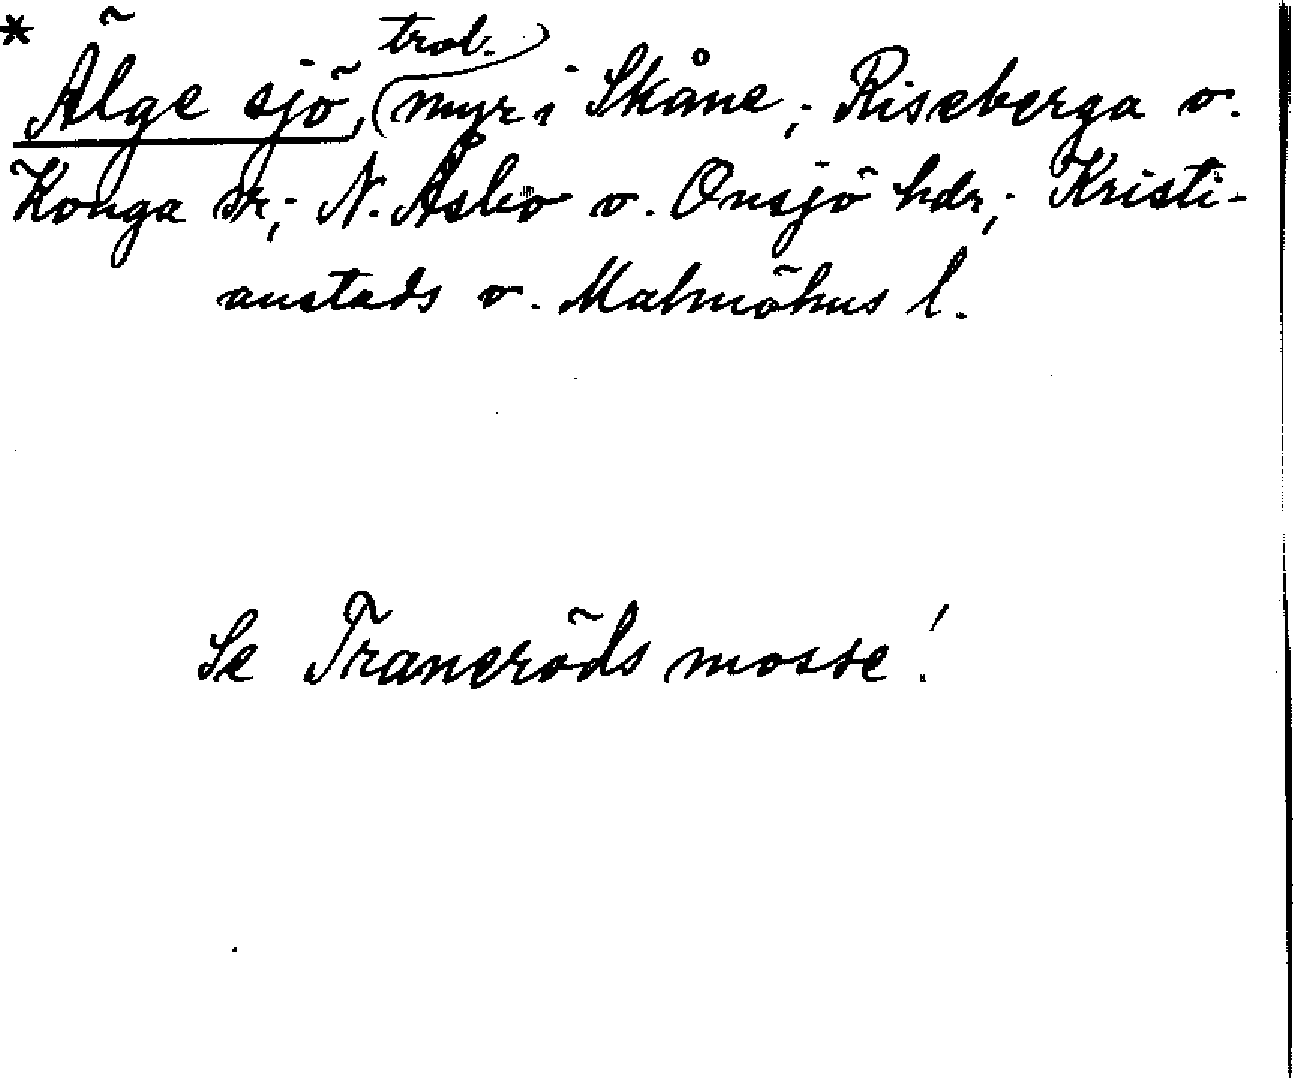 * Älge sjö, (trol. myr) i Skåne; Riseberga o.
Konga sr; N. Åsbo o. Onsjö hdr; Kristi-
anstads o. Malmöhus l.
Se Traneröds mosse!